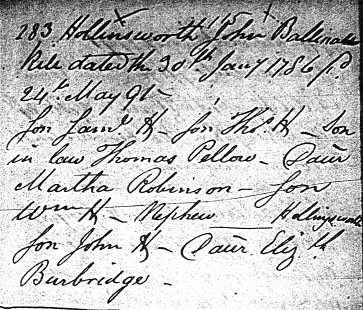 283 Hollinsworth John Ballina
Will dated the 30th Jany 1786 p.d
24th May 91 –
Son Saml. H – Son Thos. H – Son
in law Thomas Pellow – Daur
Martha Robinson – Son
Wm H – Nephew – Hollingsworth
Son John H – Daur. Elizth
Burbridge –